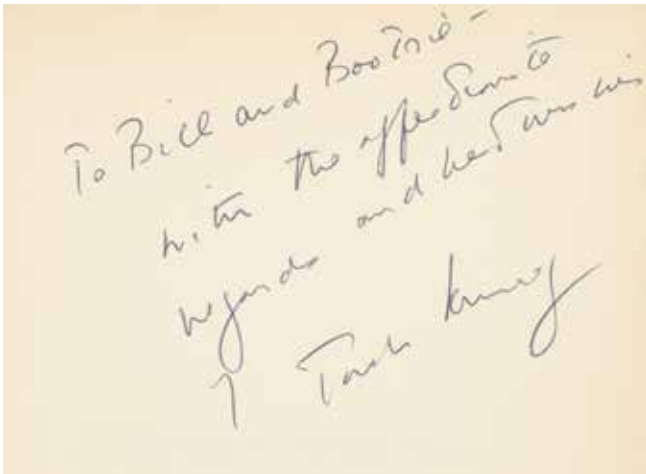 To Bill and Bootsie -
with the affectionate
regards and best wishes
of